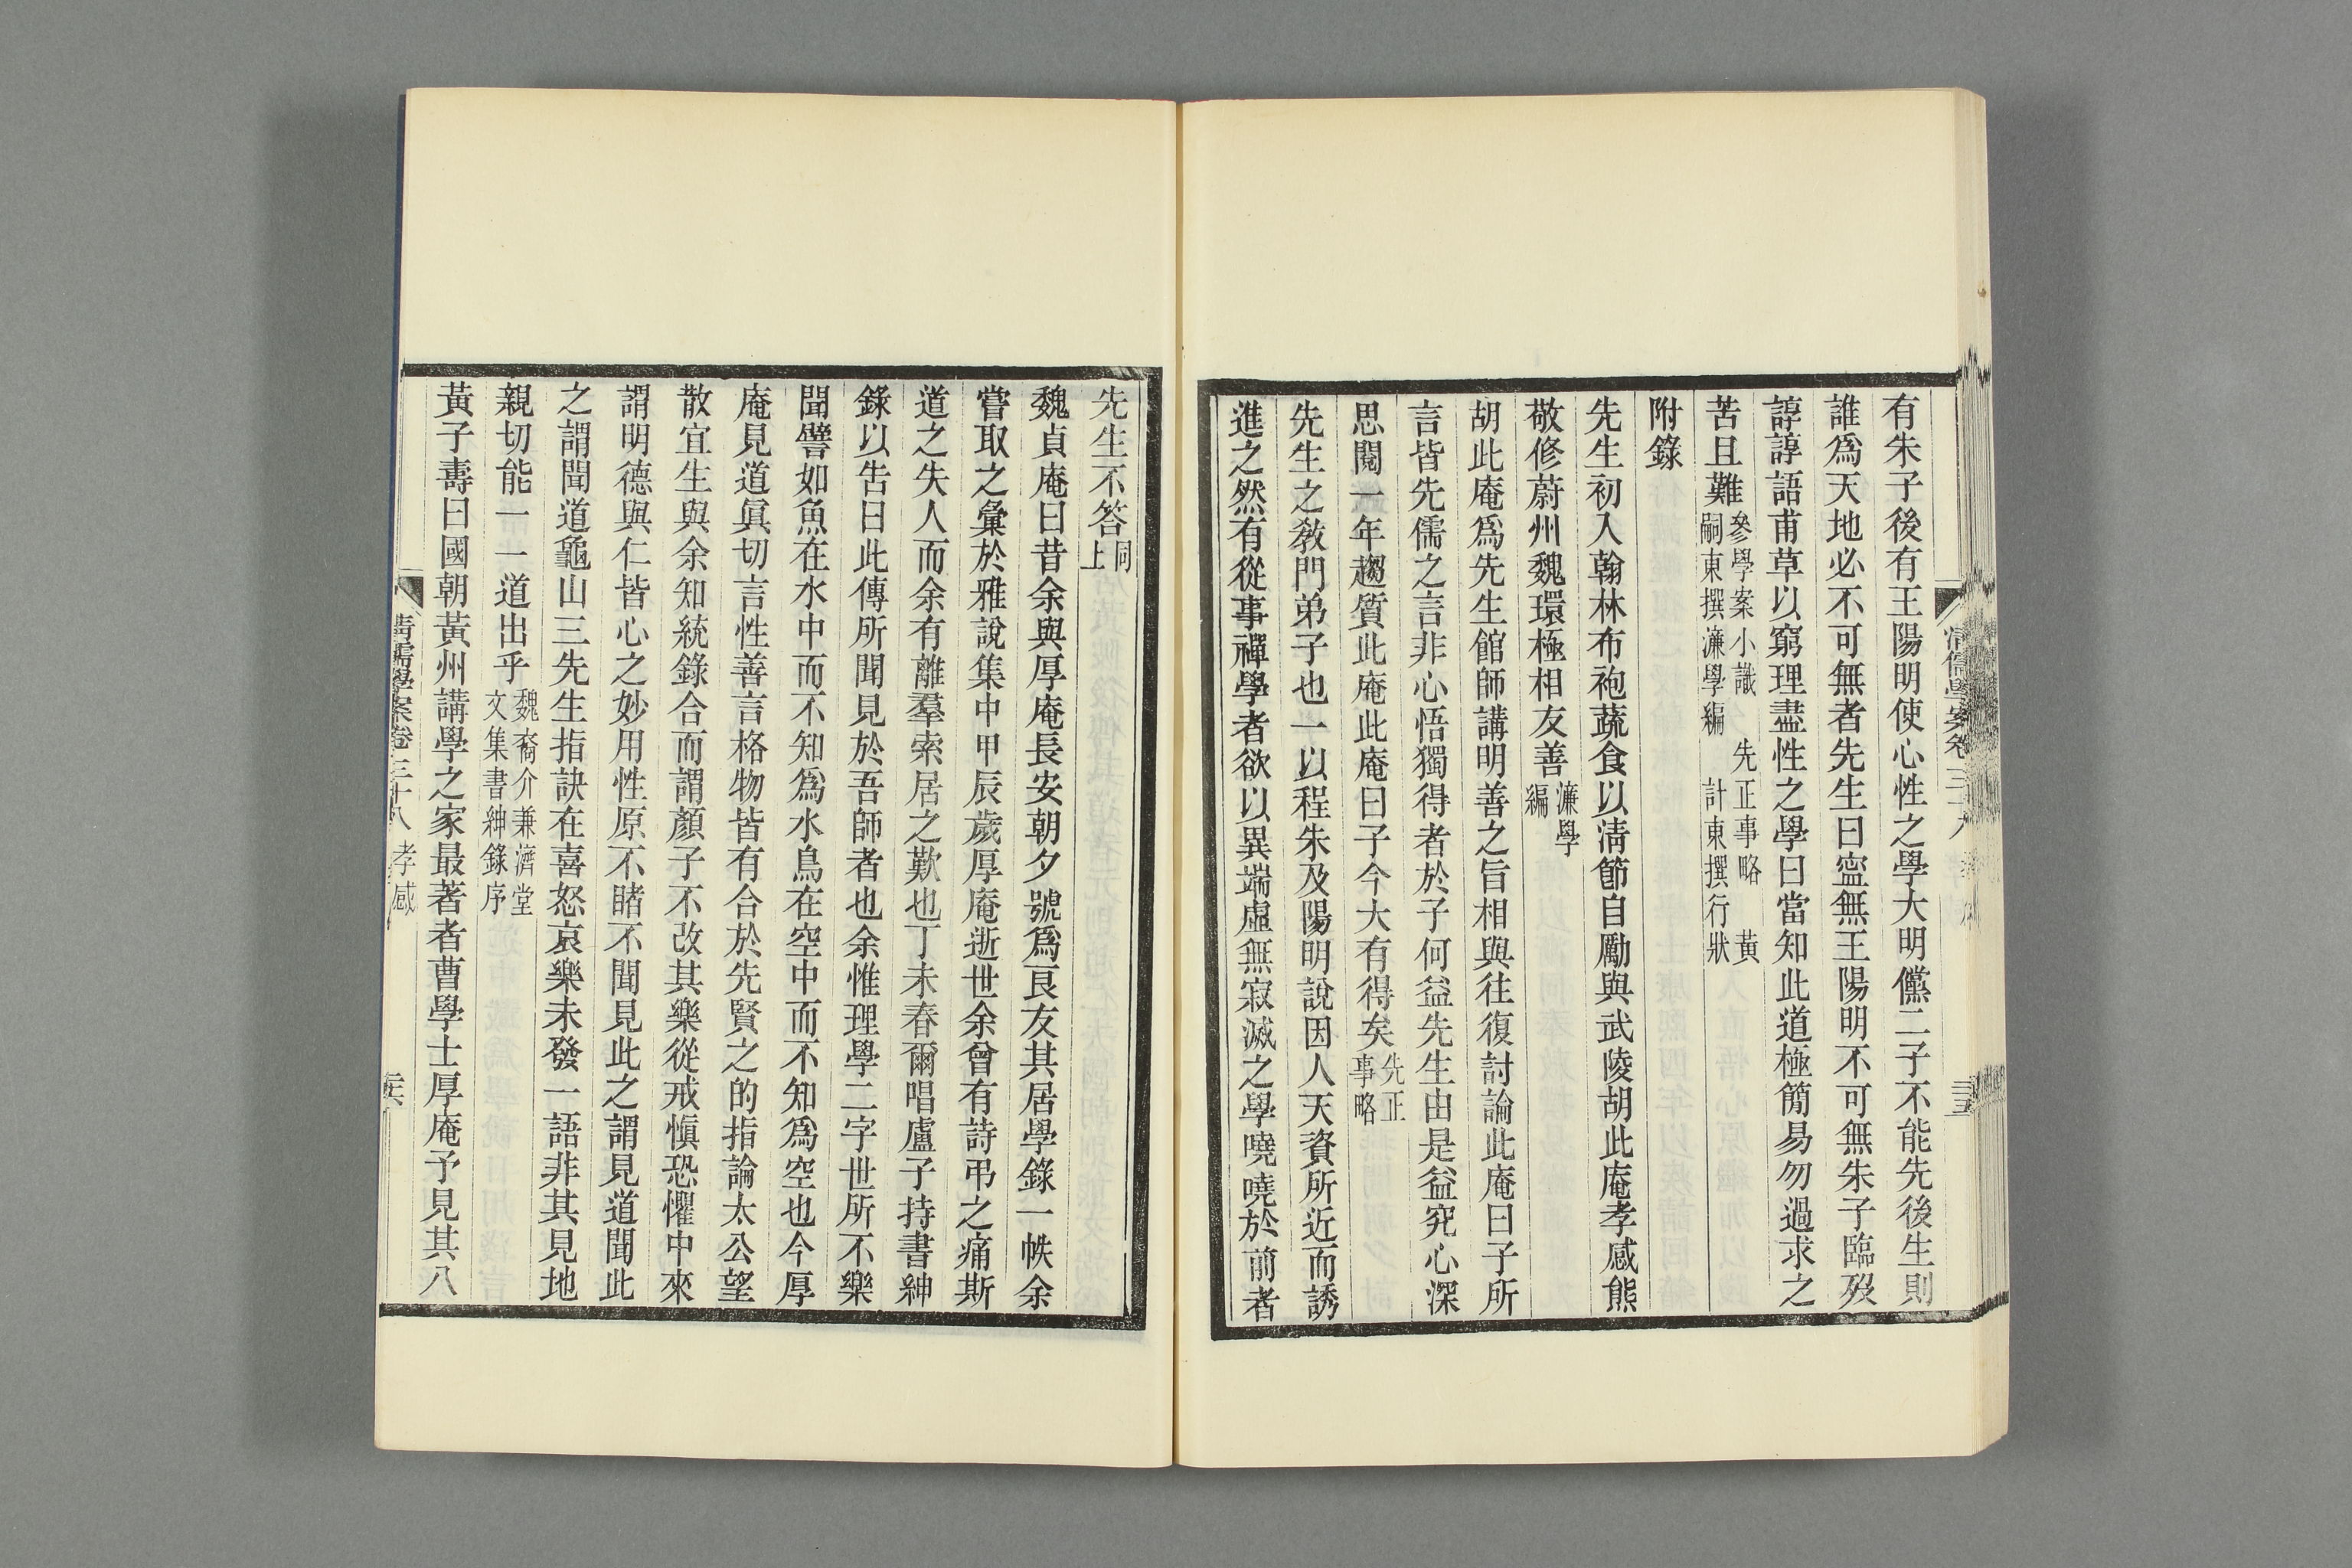 有朱子後有王陽明使心性之學大明儻二子不能先後生則
誰爲天地必不可無者先生曰寍無王陽明不可無朱子臨歿
諄諄語甫草以窮理盡性之學曰當知此道極簡易勿過求之
苦且難參學案小識 先正事略 黃嗣東撰濂學編 計東撰行狀
附錄
先生初入翰林布袍蔬食以淸節自勵與武陵胡此庵孝感熊
敬修蔚州魏環極相友善濂學編
胡此庵爲先生館師講明善之旨相與往復討論此庵曰子所
言皆先儒之言非心悟獨得者於子何益先生由是益究心深
思閱一年趨質此庵此庵曰子今大有得矣先正事略
先生之敎門弟子也一以程朱及陽明說因人天資所近而誘
進之然有從事禪學者欲以異端虛無寂滅之學嘵嘵於前者
先生不答同上
魏貞庵曰昔余與厚庵長安朝夕號爲良友其居學錄一帙余
嘗取之彙於雅說集中甲辰歲厚庵逝世余曾有詩弔之痛斯
道之失人而余有離羣索居之歎也丁未春爾唱盧子持書紳
錄以吿曰此傳所聞見於吾師者也余惟理學二字世所不樂
聞譬如魚在水中而不知爲水鳥在空中而不知爲空也今厚
庵見道眞切言性善言格物皆有合於先賢之的指論太公望
散宜生與余知統錄合而謂顏子不改其樂從戒愼恐懼中來
謂明德與仁皆心之妙用性原不睹不聞見此之謂見道聞此
之謂聞道龜山三先生指訣在喜怒哀樂未發一語非其見地
親切能一一道出乎魏裔介兼濟堂文集書紳錄序
黃子壽曰國朝黃州講學之家最著者曹學士厚庵予見其八
淸儒學案卷三十八 孝感